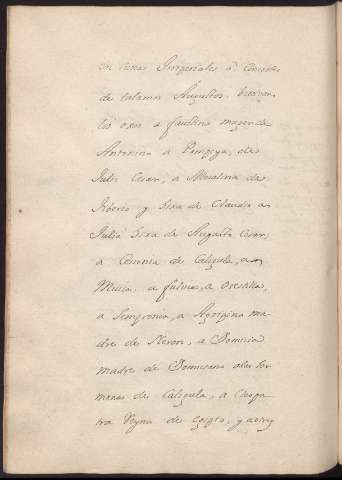 en cunas Imperiales ô Consortes
de talamos Augustos. buelvan
los oxos a faustina muger de
Antonino a Pompeya, de
Julio Cesar, a Mesalina de
Tiberio y Hixa de Claudio a
Julia Hixa de Augusto Cesar;
a Cesonia de Caligula, a
Mucia, a fulvia, a Orestilla,
a Sempronia, a Agripina ma
dre de Neron, a Domicia
madre de Domiciano a las her
manas de Caligula, a Cleopa
tra Reyna de Egipto, y a otras